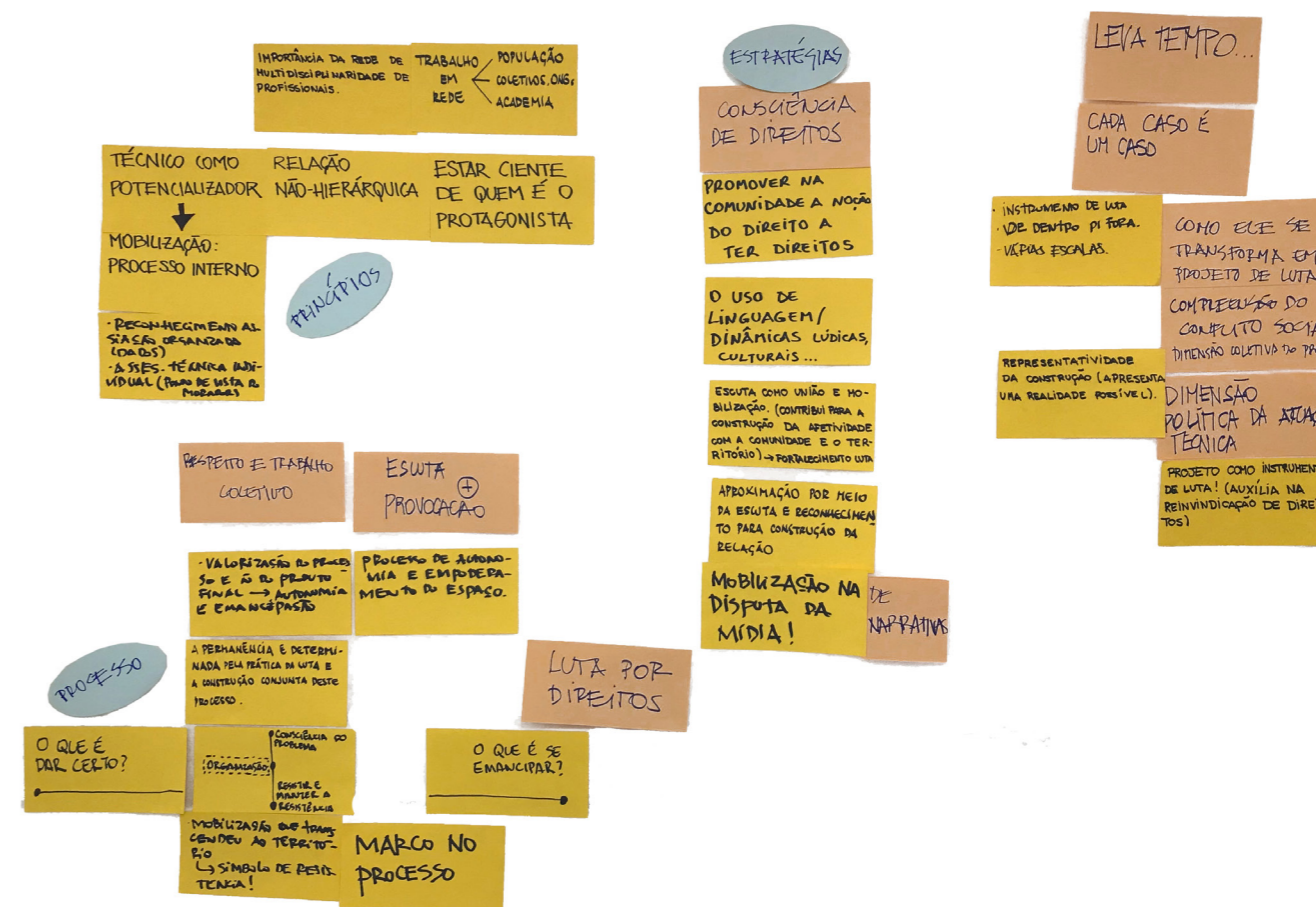 IMPORTÂNCIA DA REDE DE
MULTIDISCIPLINARIDADE DE
PROFISSIONAIS.
TRABALHO
EM
REDE
POPULAÇÃO
COLETIVOS, ONGs
ACADEMIA
TÉCNICO COMO
POTENCIALIZADOR
MOBILIZAÇÃO:
PROCESSO INTERNO
RELAÇÃO
NÃO-HIERÁRQUICA
ESTAR CIENTE
DE QUEM É O
PROTAGONISTA
PRINCÍPIOS
· RECONHECIMENTO A
ORGANIZADA
(DADOS)
· ASSES. TÉCNICA INDI-
VIDUAL (PONTO DE VISTA
MORADOR)
RESPEITO E TRABALHO
COLETIVO
ESCUTA
+
PROVOCAÇÃO
· VALORIZAÇÃO DO PROCES
SO E Ñ DO PRODUTO
FINAL → AUTONOMIA
E EMANCIPAÇÃO
PROCESSO DE AUTONO-
MIA E EMPODERA-
MENTO DO ESPAÇO.
PROCESSO
A PERMANÊNCIA É DETERMI-
NADA PELA PRÁTICA DA LUTA E
A CONSTRUÇÃO CONJUNTA DESTE
PROCESSO.
O QUE É
DAR CERTO?
CONSCIÊNCIA DO
PROBLEMA
ORGANIZAÇÃO
RESISTIR E
MANTER A
RESISTÊNCIA
O QUE É SE
EMANCIPAR?
LUTA POR
DIREITOS
MOBILIZAÇÃO QUE TRANS
CENDEU AO TERRITÓ-
RIO
↳ SÍMBOLO DE RESIS
TENCIA!
MARCO NO
PROCESSO
ESTRATÉGIAS
CONSCIÊNCIA
DE DIREITOS
PROMOVER NA
COMUNIDADE A NOÇÃO
DO DIREITO A
TER DIREITOS
O USO DE
LINGUAGEM/
DINÂMICAS LÚDICAS,
CULTURAIS...
ESCUTA COMO UNIÃO E MO-
BILIZAÇÃO. (CONTRIBUI PARA A
CONSTRUÇÃO DA AFETIVIDADE
COM A COMUNIDADE E O TER-
RITÓRIO) → FORTALECIMENTO LUTA
APROXIMAÇÃO POR MEIO
DA ESCUTA E RECONHECIMEN
TO PARA CONSTRUÇÃO DA
RELAÇÃO
MOBILIZAÇÃO NA
DISPUTA DA
MÍDIA!
DE
NARRATIVAS
LEVA TEMPO...
CADA CASO É
UM CASO
· INSTRUMENTO DE LUTA
· DE DENTRO P/ FORA.
· VÁRIAS ESCALAS.
COMO ELE SE
TRANSFORMA EM
PROJETO DE LUTA
COMPREENSÃO DO
CONFLITO
DIMENSÃO COLETIVA DO
REPRESENTATIVIDADE
DA CONSTRUÇÃO (APRESENTA
UMA REALIDADE POSSÍVEL).
DIMENSÃO
POLÍTICA DA
TÉCNICA
PROJETO COMO
DE LUTA! (AUXÍLIA NA
REINVINDICAÇÃO DE
TOS)